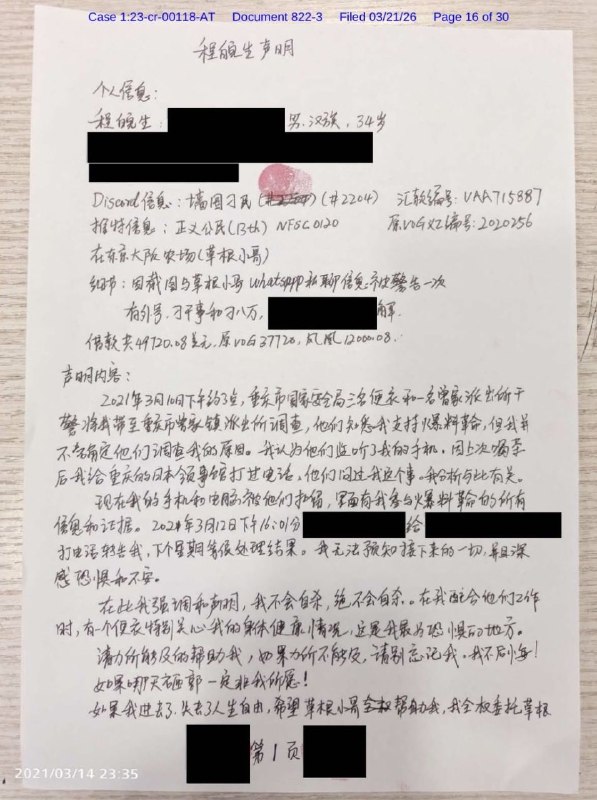 Case 1:23-cr-00118-AT Document 822-3 Filed 03/21/26 Page 16 of 30
程皖生声明
个人信息：
程皖生： 男.汉族，34岁
Discord信息：墙国刁民(#2204)(#2204) 汇款编号：VAA715887
推特信息：正义公民(13th) NFSC0120 原VOG号编号：2020256
在东京大阪农场(草根小哥)
细节：因截图与草根小哥whatsapp私聊信息被警告一次
有外号，刁干事和刁八万， 解.
借款共49720.08美元，原VOG37720，凤凰12000.08.
声明内容：
2021年3月10日下午约3点，重庆市国家安全局三名便衣和一名曾家派出所干
警将我带至重庆市曾家镇派出所调查，他们知悉我支持爆料革命，但我并
不能确定他们调查我的原因。我认为他们监听了我的手机，因上次
后我给重庆的日本领事馆打过电话，他们问过我这个事。我分析与此有关。
现在我的手机和电脑被他们扣留，里面有我参与爆料革命的所有
信息和证据。2021年3月12日下午16:01分 给
打电话转告我，下个星期等候处理结果。我无法预知接下来的一切，并且深
感恐惧和不安。
在此我强调和声明，我不会自杀，绝不会自杀。在我配合他们工作
时，有个便衣特别关心我的身体健康情况，这是我最为恐惧的地方。
请力所能及的帮助我，如果力所不能及，请别忘记我。我不后悔！
如果哪天在砸郭一定非我所愿！
如果我进去了，失去了人生自由，希望草根小哥全权帮助我，我全权委托草根
第1页
2021/03/14 23:35